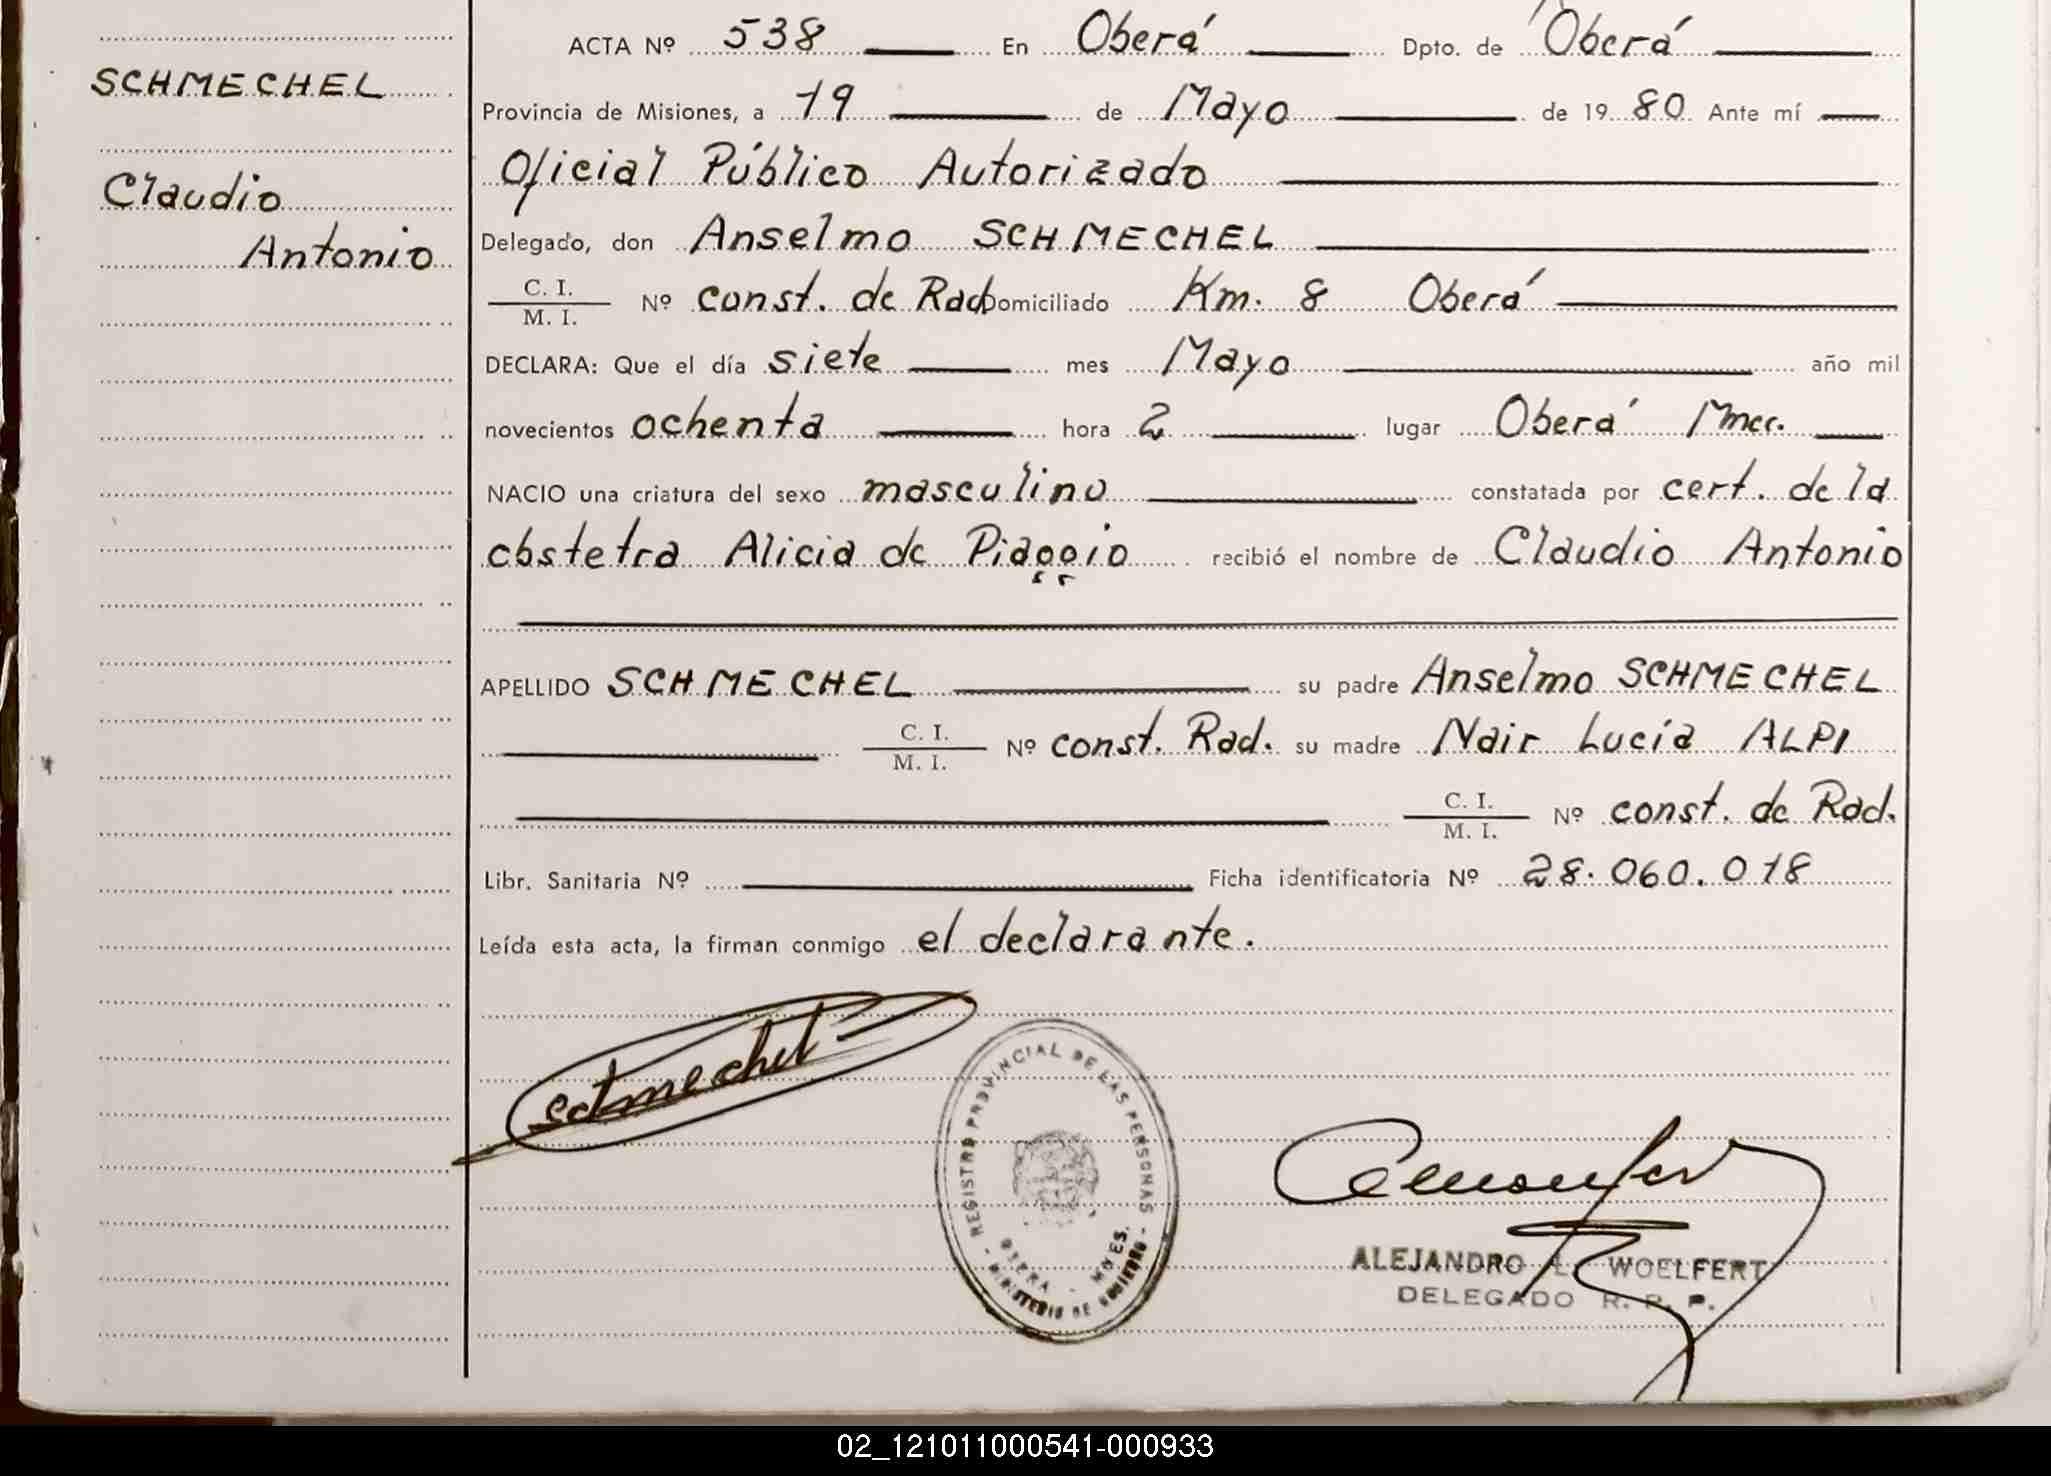 SCHMECHEL
Claudio
Antonio
ACTA Nº 538 En Oberá Dpto. de Oberá
Provincia de Misiones, a 19 de Mayo de 19 80 Ante mí
Oficial Público Autorizado
Delegado, don Anselmo SCHMECHEL
C. I.
M. I. Nº const. de Rad Domiciliado Km. 8 Oberá
DECLARA: Que el día siete mes Mayo año mil
novecientos ochenta hora 2 lugar Oberá Mnes.
NACIO una criatura del sexo masculino constatada por cert. de la
obstetra Alicia de Piaggio recibió el nombre de Claudio Antonio
APELLIDO SCHMECHEL su padre Anselmo SCHMECHEL
C. I.
M. I. Nº const. Rad. su madre Nair Lucía ALPI
C. I.
M. I. Nº const. de Rad.
Libr. Sanitaria Nº Ficha identificatoria Nº 28.060.018
Leída esta acta, la firman conmigo el declarante.
Schmechel
- REGISTRO PROVINCIAL DE LAS PERSONAS -
OBERA - MNES.
MINISTERIO DE GOBIERNO
ALEJANDRO L. WOELFERT
DELEGADO R. P. P.
02_121011000541-000933